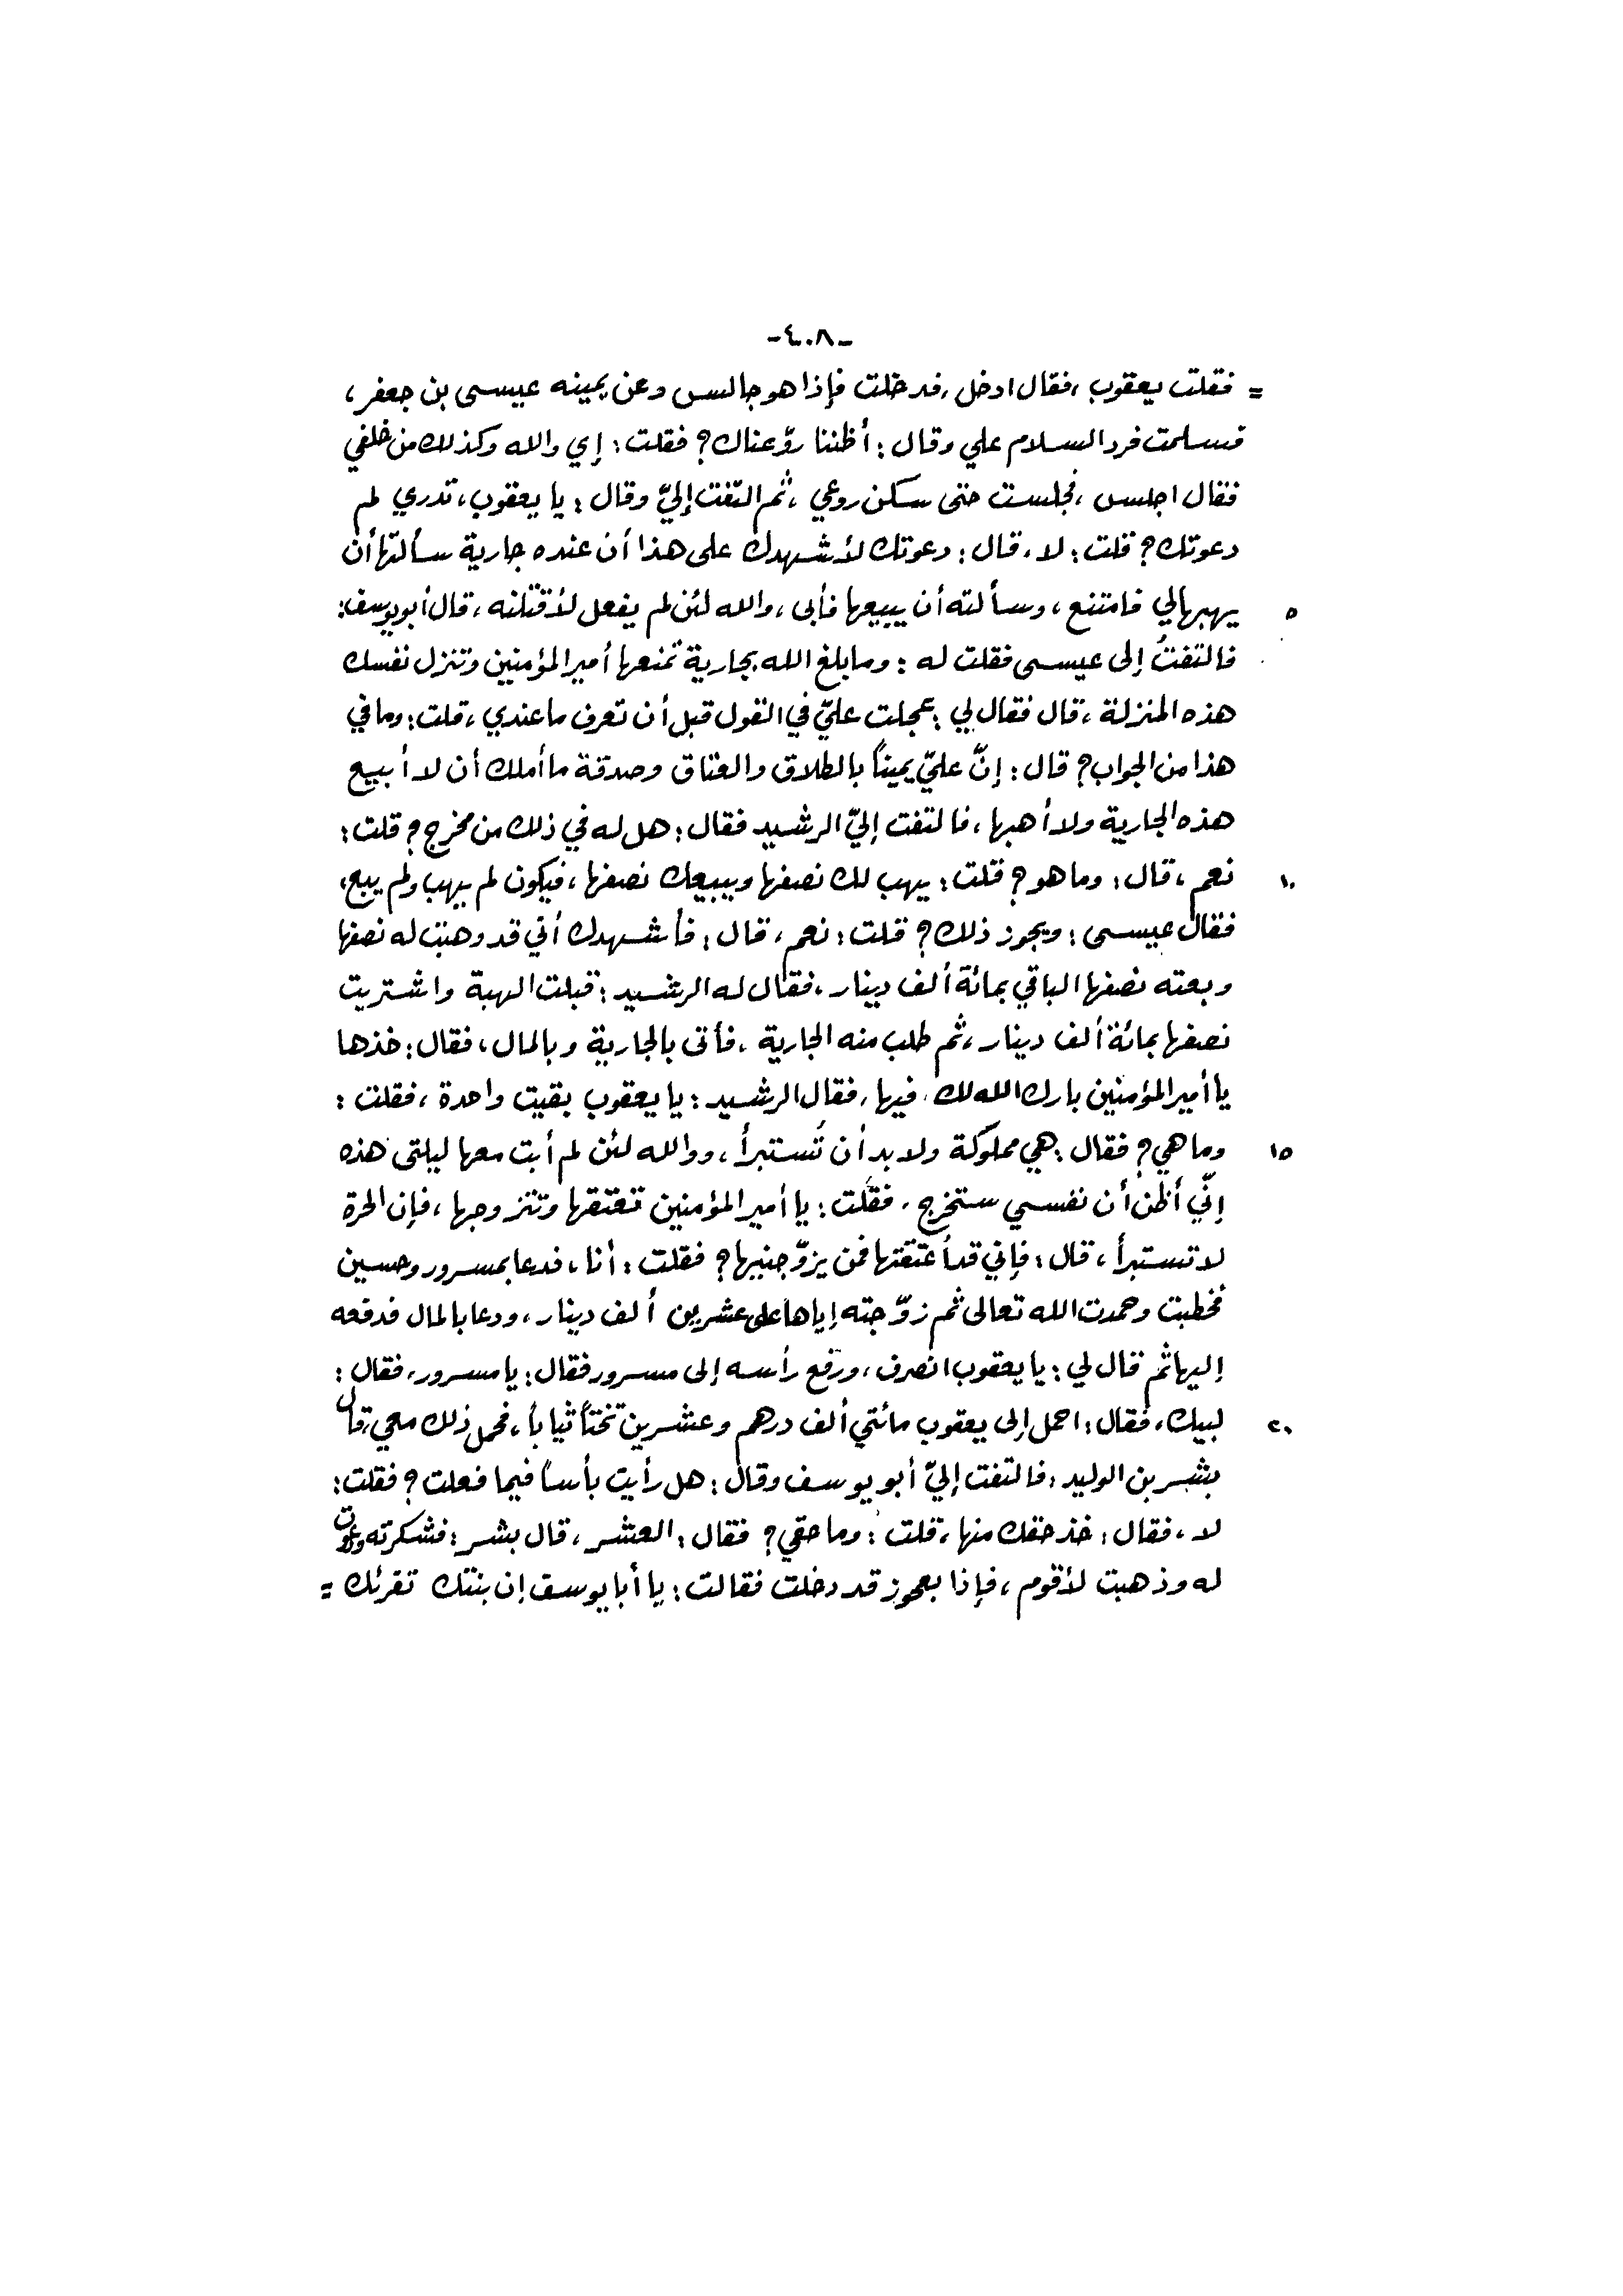 -٤٠٨-
= فقلت يعقوب ،فقال ادخل ، فدخلت فإذا هو جالس وعن يمينه عيسى بن جعفر ،
فسلمت فرد السلام علي وقال : أظننا روّعناك ؟ فقلت : إي والله وكذلك من خلفي
فقال اجلس ، فجلست حتى سكن روعي ، ثم التفت إليّ وقال : يا يعقوب ، تدري لم
دعوتك ؟ قلت : لا ، قال : دعوتك لأشهدك على هذا أن عنده جارية سألتها أن
٥ يهبها لي فامتنع ، وسألته أن يبيعها فأبى ، والله لئن لم يفعل لأقتلنه ، قال أبو يوسف :
فالتفتُ إلى عيسى فقلت له : وما بلغ الله بجارية تمنعها أمير المؤمنين وتنزل نفسك
هذه المنزلة ، قال فقال لي : عجلت عليّ في القول قبل أن تعرف ما عندي ، قلت : وما في
هذا من الجواب ؟ قال : إنّ عليّ يميناً بالطلاق والعتاق وصدقة ما أملك أن لا أبيع
هذه الجارية ولا أهبها ، فالتفت إليّ الرشيد فقال : هل له في ذلك من مخرج ؟ قلت :
١٠ نعم ، قال : وما هو ؟ قلت : يهب لك نصفها ويبيعك نصفها ، فيكون لم يهب ولم يبع ،
فقال عيسى : ويجوز ذلك ؟ قلت : نعم ، قال : فأشهدك أني قد وهبت له نصفها
وبعته نصفها الباقي بمائة ألف دينار ، فقال له الرشيد : قبلت الهبة واشتريت
نصفها بمائة ألف دينار ، ثم طلب منه الجارية ، فأتى بالجارية وبالمال ، فقال : خذها
يا أمير المؤمنين بارك الله لك فيها ، فقال الرشيد : يا يعقوب بقيت واحدة ، فقلت :
١٥ وما هي ؟ فقال : هي مملوكة ولا بد أن تُستبرأ ، ووالله لئن لم أبت معها ليلتى هذه
إنّي أظن أن نفسي ستخرج ، فقلت : يا أمير المؤمنين تعتقها وتتزوجها ، فإن الحرة
لا تستبرأ ، قال : فإني قد أعتقتها فمن يزوّجنيها ؟ فقلت : أنا ، فدعا بمسرور وحسين
فخطبت وحمدت الله تعالى ثم زوّجته إياها على عشرين ألف دينار ، ودعا بالمال فدفعه
إليها ثم قال لي : يا يعقوب انصرف ، ورفع رأسه إلى مسرور فقال : يا مسرور ، فقال :
٢٠ لبيك ، فقال : احمل إلى يعقوب مائتي ألف درهم وعشرين تختاً ثياباً ، فحمل ذلك معي ، قال
بشر بن الوليد : فالتفت إليّ أبو يوسف وقال : هل رأيت بأساً فيما فعلت ؟ فقلت :
لا ، فقال : خذ حقك منها ، قلت : وما حقي ؟ فقال : العشر ، قال بشر : فشكرته ودعوت
له وذهبت لأقوم ، فإذا بعجوز قد دخلت فقالت : يا أبا يوسف إن بنتك تقرئك =